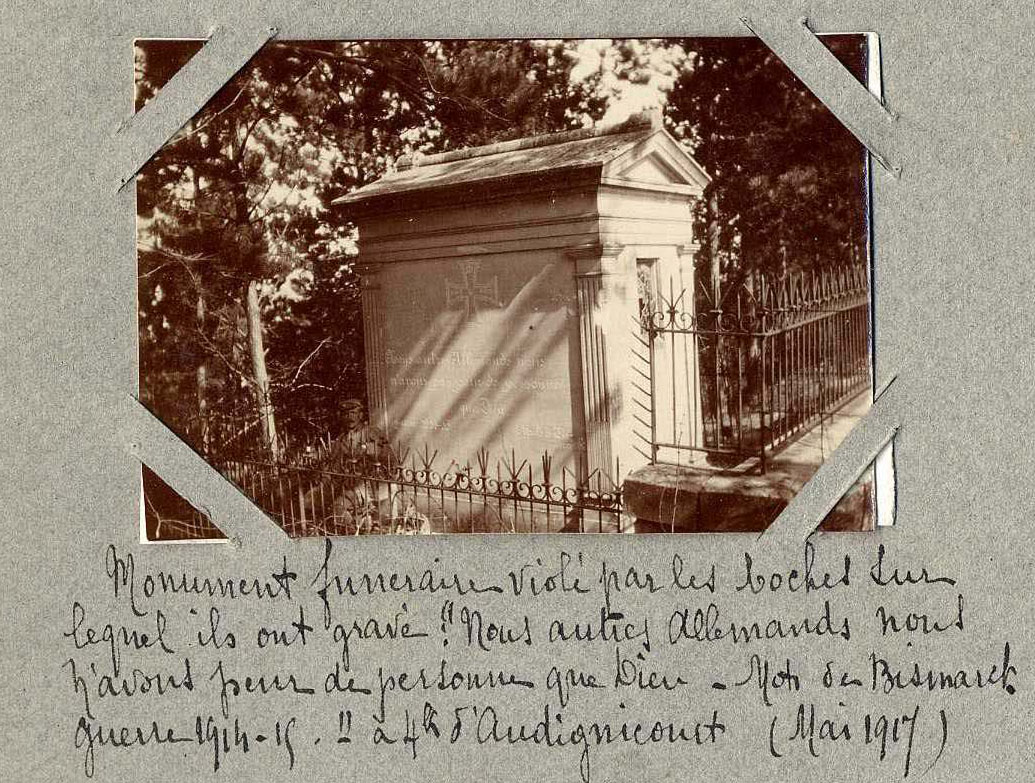 Nous autres Allemands nous
n'avons peur de personne
que Dieu
Monument funeraire violé par les boches sur
lequel ils ont gravé : "Nous autres Allemands nous
n'avons peur de personne que Dieu - Mot de Bismarck
guerre 1914-15." à 4k d'Audignicourt (Mai 1917)